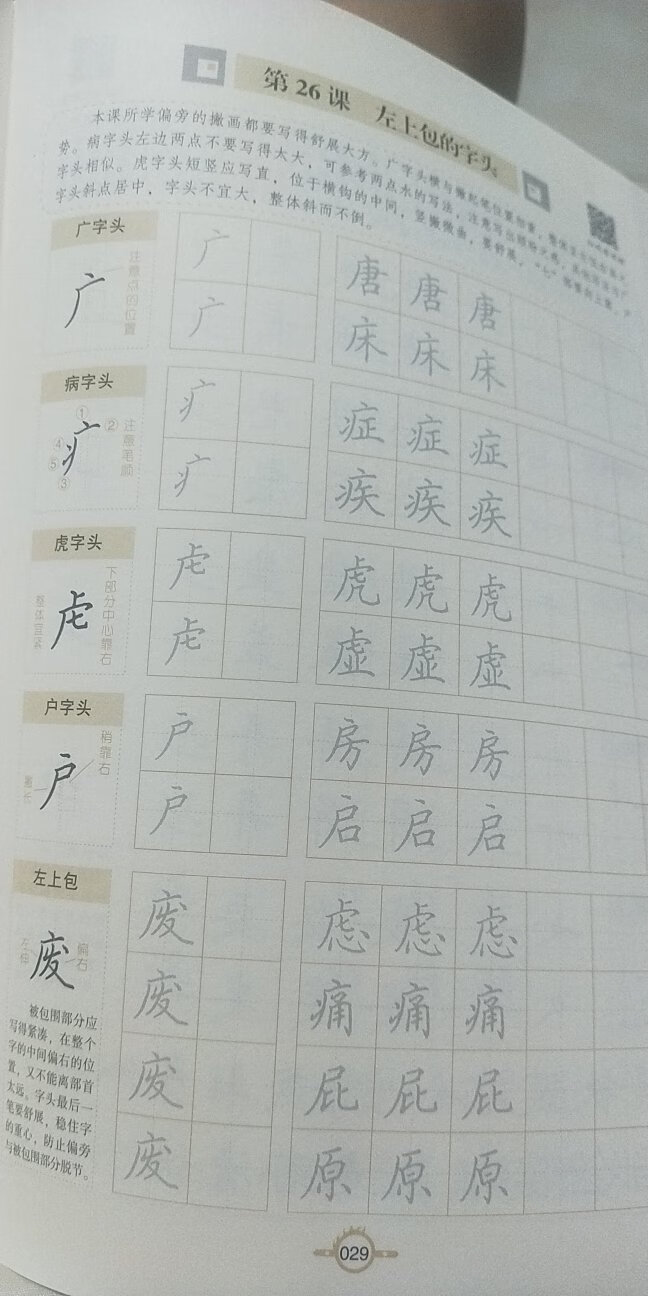 第26课 左上包的字头
本课所学偏旁的撇画都要写得舒展大方。广字头横与撇起笔位置
势。病字头左边两点不要写得太大，可参考两点水的写法，注意写出
字头相似。虎字头短竖应写直，位于横钩的中间，竖撇微曲，要舒展，“七”
字头斜点居中，字头不宜大，整体斜而不倒。
广字头
广
注意点的位置
广
广
唐 唐 唐
床 床 床
病字头
疒
① ② ④ ⑤ ③
注意笔顺
疒
疒
症 症 症
疾 疾 疾
虎字头
虍
下部分中心靠右
整体宜紧
虍
虍
虎 虎 虎
虚 虚 虚
户字头
户
稍靠右
户
户
房 房 房
启 启 启
左上包
废
偏右
左伸
被包围部分应
写得紧凑，在整个
字的中间偏右的位
置，又不能离部首
太远。字头最后一
笔要舒展，稳住字
的重心，防止偏旁
与被包围部分脱节。
废
废
废
废
虑 虑 虑
痛 痛 痛
屁 屁 屁
原 原 原
029